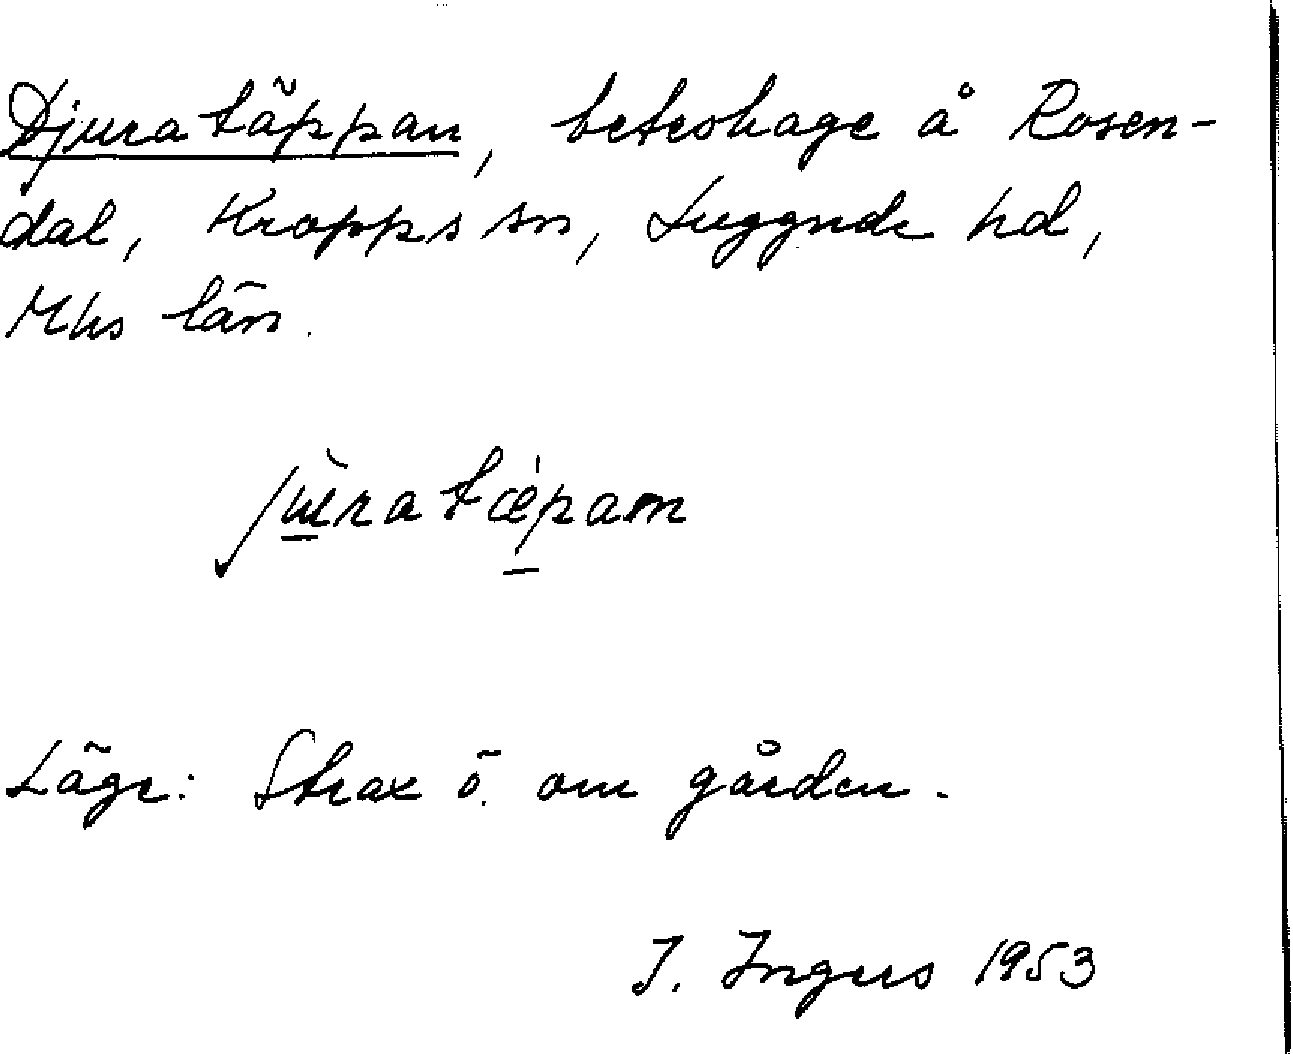 Djuratäppan, beteshage å Rosen-
dal, Kropps sn, Luggude hd,
Mhs län.
jura tæpam
Läge: Strax ö. om gården.
I. Ingers 1953